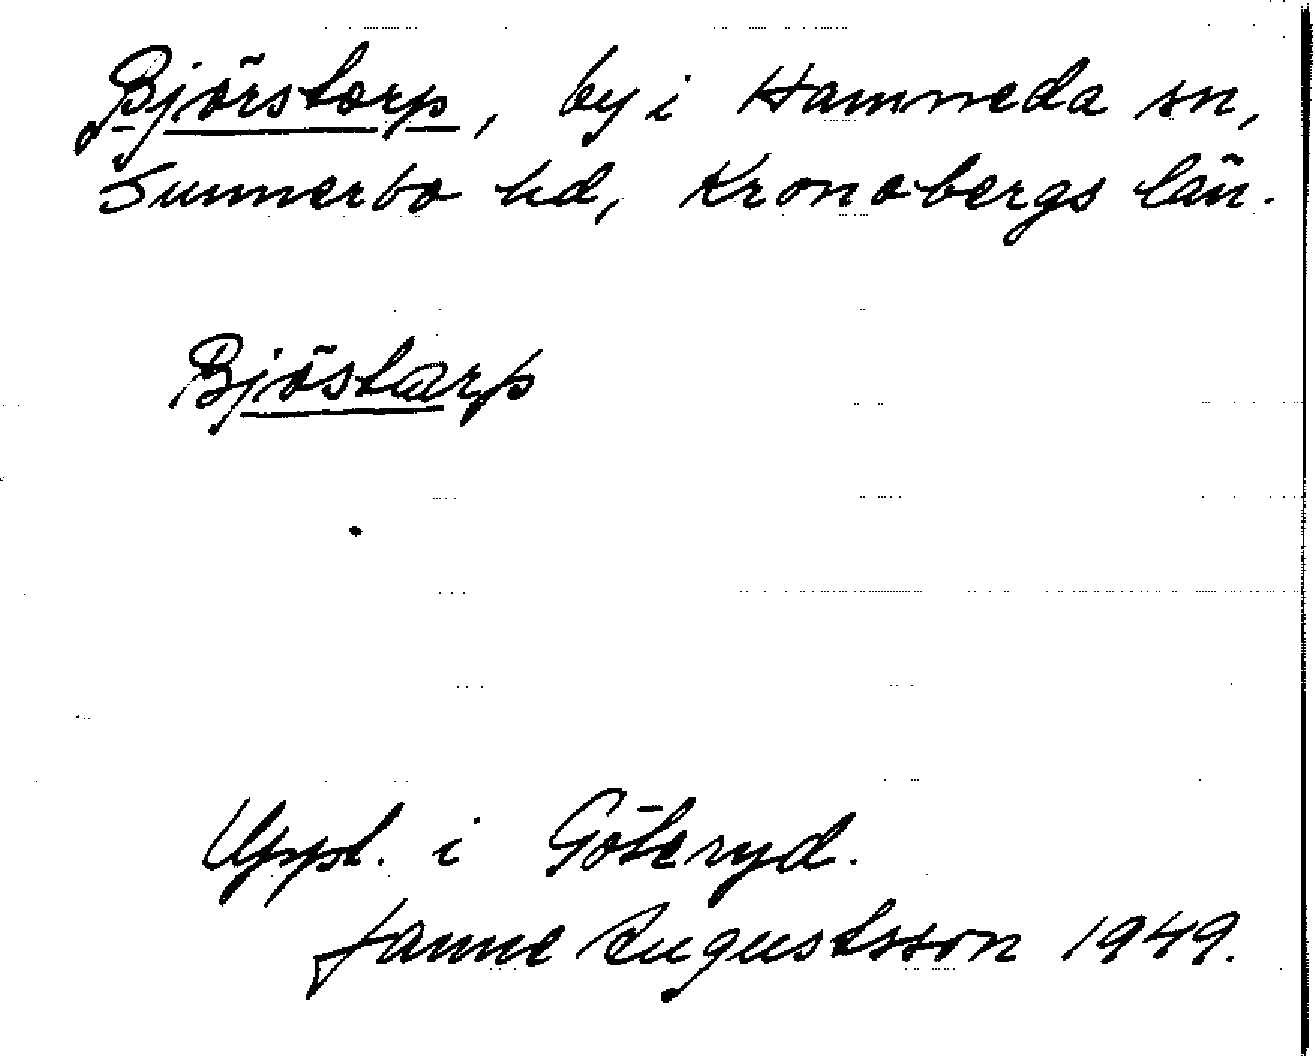 Björstorp, by i Hamneda sn,
Sunnerbo hd, Kronobergs län.
Bjöstarp
Uppt. i Göteryd.
Janne Augustsson 1949.